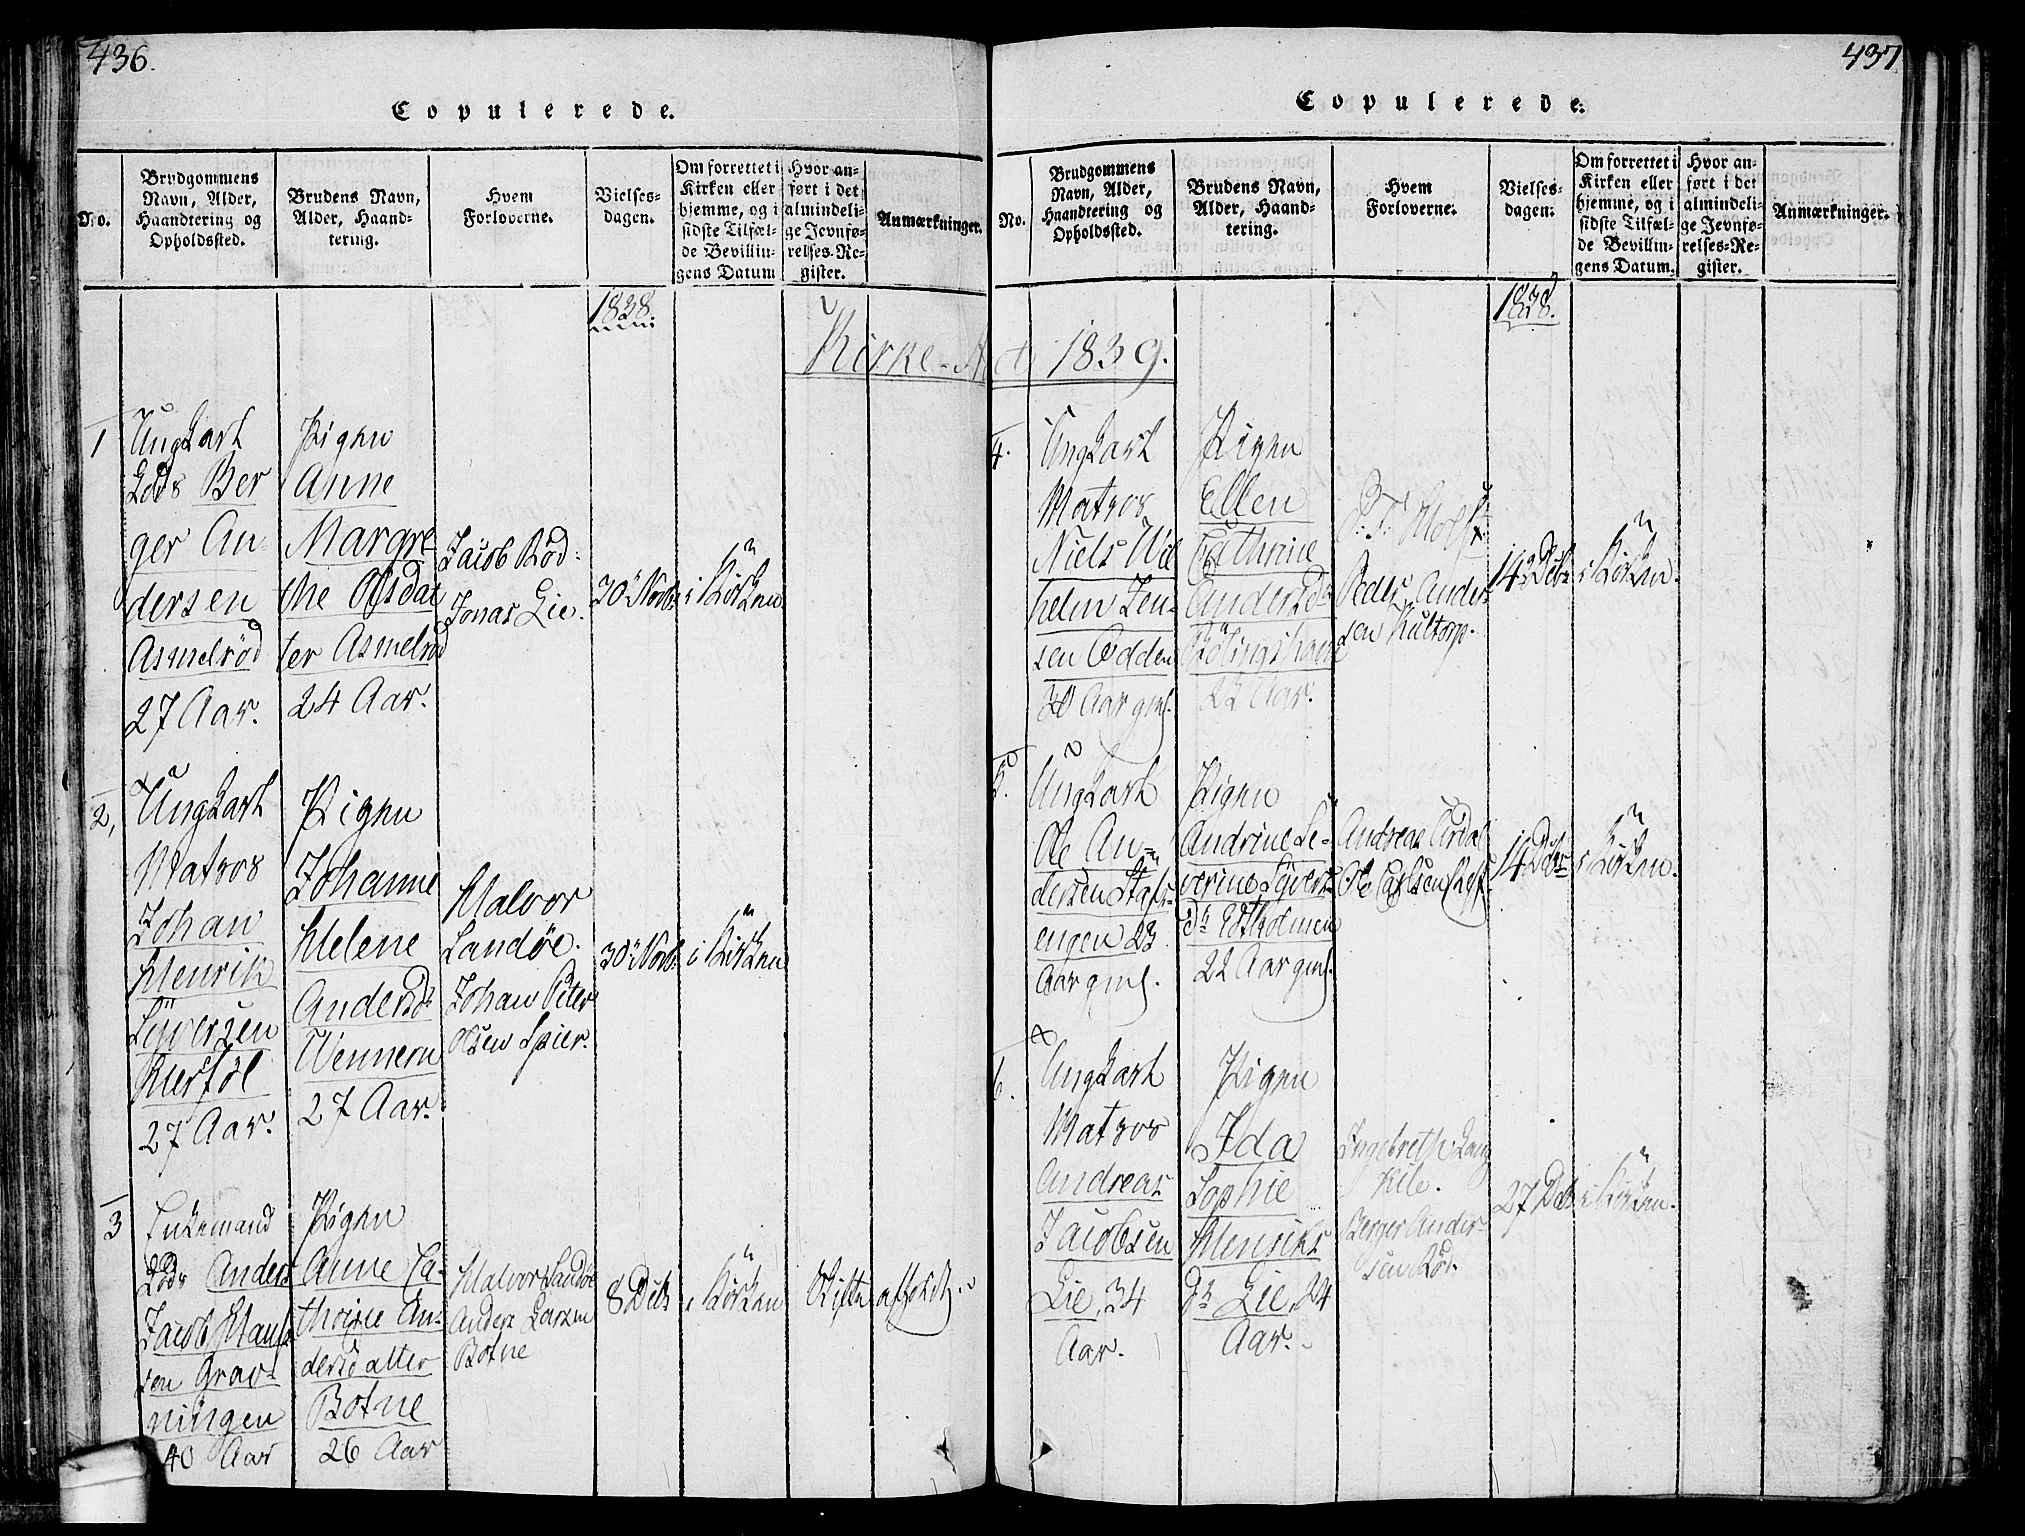 436.
Copulerede.
No.
Brudgommens Navn, Alder, Haandtering og Opholdssted.
Brudens Navn, Alder, Haandtering.
Hvem Forloverne.
Vielses-dagen.
Om forrettet i Kirken eller hjemme, og i sidste Tilfælde Bevillingens Datum
Hvor anført i det almindelige Jevnførelses-Register.
Anmærkninger.
1838.
Kirke-A
1
Ungkarl
Lods Ber
ger An-
dersen
Asmelröd
27 Aar.
Pigen
Anne
Margre
the Olsdat
ter Asmelröd
24 Aar.
Jacob Röd
Jonas Lie.
30 Novb
i Kirken
2,
Ungkarl
Matros
Johan
Henrik
Syversen
Kierföl
27 Aar.
Pigen
Johanne
Helene
Andersd.
Wennern
27 Aar.
Halvor
Landøe.
Johan Peter
Olsen Spier.
30 Novb
i Kirken
3
Enkemand
Lods Anders
Jacob Hans
sen Grav-
ningen
40 Aar
Pigen
Anne Ca-
thrine An-
dersdatter
Botne
26 Aar
Halvor Landöe
Anders Larsen
Botne
8 Deb
i Kirken
Skifte afholdt.
437
Copulerede.
No.
Brudgommens Navn, Alder, Haandtering og Opholdssted.
Brudens Navn, Alder, Haandtering.
Hvem Forloverne.
Vielses-dagen.
Om forrettet i Kirken eller hjemme, og i sidste Tilfælde Bevillingens Datum.
Hvor anført i det almindelige Jevnførelses-Register.
Anmærkninger.
1838.
1839.
4.
Ungkarl
Matros
Niels Wil
helm Jen-
sen Odden
30 Aar gml.
Pigen
Ellen
Cathrine
Andersd.
22 Aar.
Holst
Peder Ander
sen Kultorp.
14 Deb
i Kirken.
5.
Ungkarl
Ole An-
dersen
engen 23
Aar gml.
Pigen
Andrine Se-
verine Syvers
dr
22 Aar gml.
Andreas
Ole Carlsen
14 Deb
i Kirken.
6.
Ungkarl
Matros
Andreas
Jacobsen
Lie, 34
Aar.
Pigen
Ida
Sophie
Henriks
dr Lie, 24
Aar.
Ingebreth Lang
Kile.
Berger Ander-
sen Röd.
27 Deb
i Kirken.